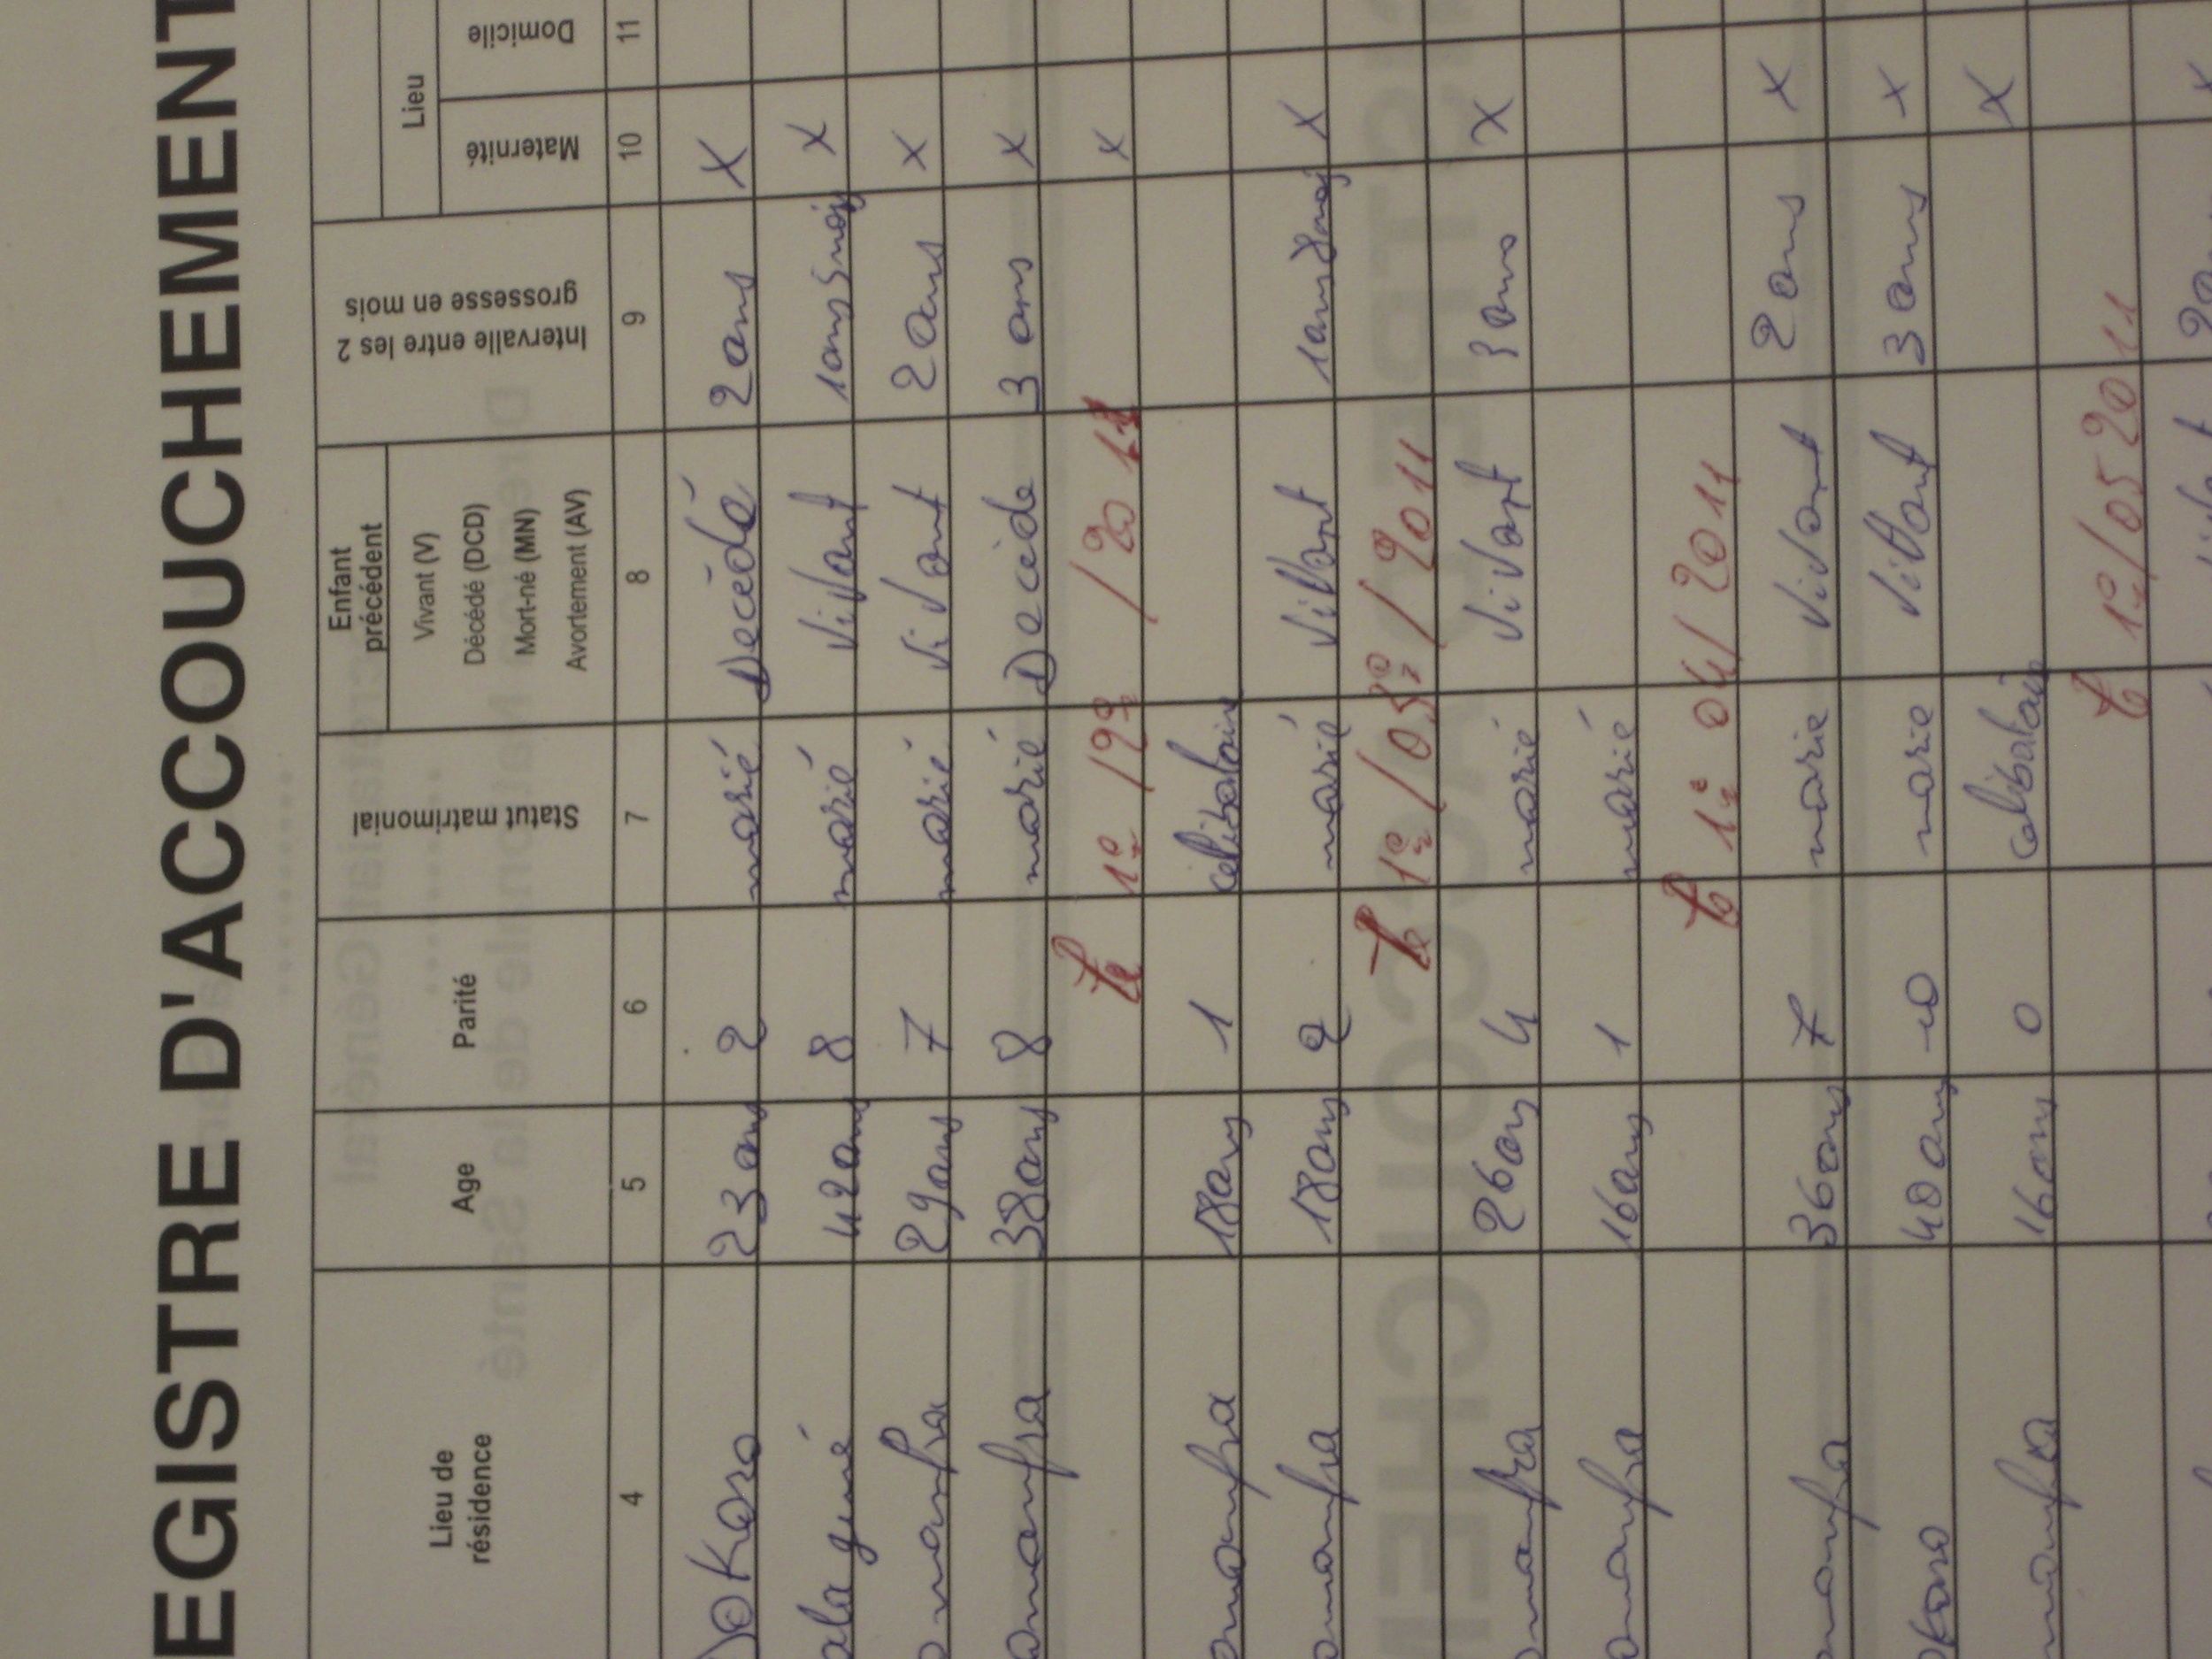 EGISTRE D'ACCOUCHEMENT
Lieu de résidence
Age
Parité
Statut matrimonial
Enfant précédent
Vivant (V)
Décédé (DCD)
Mort-né (MN)
Avortement (AV)
Intervalle entre les 2 grossesse en mois
Lieu
Maternité
Domicile
4 5 6 7 8 9 10 11
23 ans 2 marié Decédé 2 ans X
ala giné 42 ans 8 marié Vivant 1ans 5 mois X
29 ans 7 marié Vivant 2 ans X
omanfra 38 ans 8 marié Decède 3 ans X
X
omanfra 18 ans 1 celibatair
omanfra 18 ans 2 marié Vivant X
Te 1e /03e / 2011
omanfra 26 ans 4 marié Vivant 3 ans X
omanfra 16 ans 1 marié
Te 1e 04/ 2011
omanfra 36 ans 7 marie Vivant 2 ans X
40 ans 10 marie Vivant 3 ans X
omanfra 16 ans 0 celibatair X
Te 1e/05 2011